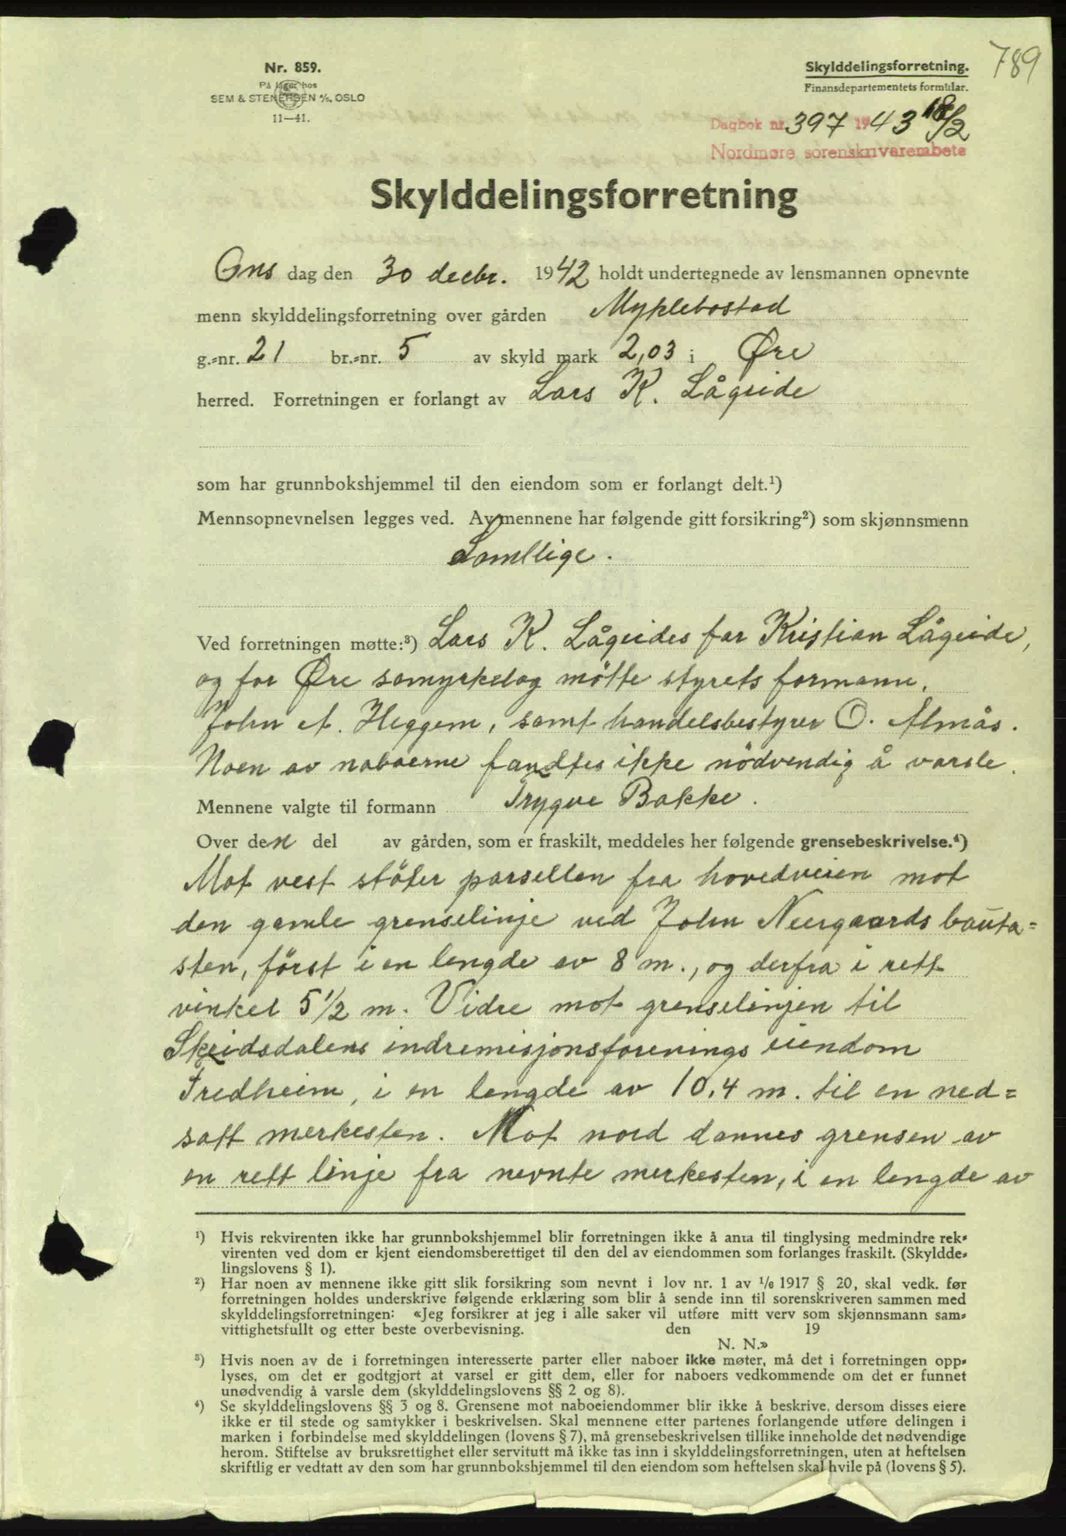 789
Nr. 859.
På lager hos
SEM & STENERSEN A/S, OSLO
11—41.
Skylddelingsforretning.
Finansdepartementets formular.
Dagbok nr. 397 1943 18/2
Nordmøre sorenskriverembete
Skylddelingsforretning
Ons dag den 30 decbr. 1942 holdt undertegnede av lensmannen opnevnte
menn skylddelingsforretning over gården Myklebostad
g.-nr. 21 br.-nr. 5 av skyld mark 2,03 i Øre
herred. Forretningen er forlangt av Lars K. Lågeide
som har grunnbokshjemmel til den eiendom som er forlangt delt.¹)
Mennsopnevnelsen legges ved. Av mennene har følgende gitt forsikring²) som skjønnsmenn
Samtlige.
Ved forretningen møtte:³) Lars K. Lågeides far Kristian Lågeide,
og for Øre samyrkelag møtte styrets formann,
John A. Heggem, samt handelsbestyrer O. Almås.
Noen av naboerne fandtes ikke nödvendig å varsle.
Mennene valgte til formann Trygve Bakke.
Over den del av gården, som er fraskilt, meddeles her følgende grensebeskrivelse.⁴)
Mot vest støter parsellen fra hovedveien mot
den gamle grenselinje ved John Neergaards bauta=
sten, først i en lengde av 8 m., og derfra i rett
vinkel 5 1/2 m. Vidre mot grenselinjen til
Skeidsdalens indremisjonsforenings eiendom
Fredheim, i en lengde av 10,4 m. til en ned=
satt merkesten. Mot nord dannes grensen av
en rett linje fra nevnte merkesten, i en lengde av
¹) Hvis rekvirenten ikke har grunnbokshjemmel blir forretningen ikke å anta til tinglysing medmindre rek-
virenten ved dom er kjent eiendomsberettiget til den del av eiendommen som forlanges fraskilt. (Skyldde-
lingslovens § 1).
²) Har noen av mennene ikke gitt slik forsikring som nevnt i lov nr. 1 av 1/6 1917 § 20, skal vedk. før
forretningen holdes underskrive følgende erklæring som blir å sende inn til sorenskriveren sammen med
skylddelingsforretningen: «Jeg forsikrer at jeg i alle saker vil utføre mitt verv som skjønnsmann sam-
vittighetsfullt og etter beste overbevisning. den 19
N. N.»
³) Hvis noen av de i forretningen interesserte parter eller naboer ikke møter, må det i forretningen opp-
lyses, om det er godtgjort at varsel er gitt dem, eller for naboers vedkommende om det er funnet
unødvendig å varsle dem (skylddelingslovens §§ 2 og 8).
⁴) Se skylddelingslovens §§ 3 og 8. Grensene mot naboeiendommer blir ikke å beskrive, dersom disses eiere
ikke er til stede og samtykker i beskrivelsen. Skal mennene etter partenes forlangende utføre delingen i
marken i forbindelse med skylddelingen (lovens § 7), må grensebeskrivelsen tillike inneholde det nødvendige
herom. Stiftelse av bruksrettighet eller servitutt må ikke tas inn i skylddelingsforretningen, uten at heftelsen
skriftlig er vedtatt av den som har grunnbokshjemmel til den eiendom som heftelsen skal hvile på (lovens § 5).